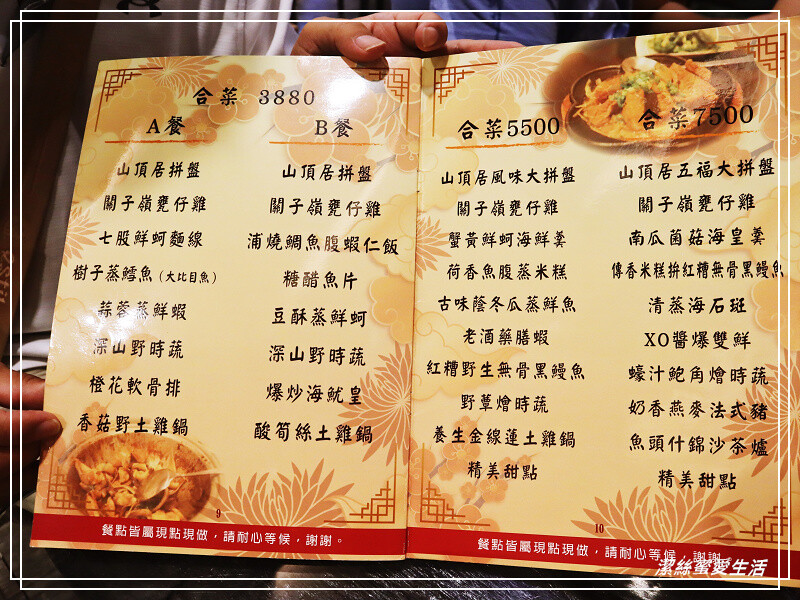 合菜 3880
A餐
山頂居拼盤
關子嶺甕仔雞
七股鮮蚵麵線
樹子蒸鱈魚(大比目魚)
蒜蓉蒸鮮蝦
深山野時蔬
橙花軟骨排
香菇野土雞鍋
B餐
山頂居拼盤
關子嶺甕仔雞
蒲燒鯛魚腹蝦仁飯
糖醋魚片
豆酥蒸鮮蚵
深山野時蔬
爆炒海魷皇
酸筍絲土雞鍋
9
餐點皆屬現點現做，請耐心等候，謝謝。
合菜5500
山頂居風味大拼盤
關子嶺甕仔雞
蟹黃鮮蚵海鮮羹
荷香魚腹蒸米糕
古味蔭冬瓜蒸鮮魚
老酒藥膳蝦
紅糟野生無骨黑鰻魚
野蕈燴時蔬
養生金線蓮土雞鍋
精美甜點
合菜7500
山頂居五福大拼盤
關子嶺甕仔雞
南瓜菌菇海皇羹
傳香米糕拚紅糟無骨黑鰻魚
清蒸海石斑
XO醬爆雙鮮
蠔汁鮑角燴時蔬
奶香燕麥法式豬
魚頭什錦沙茶爐
精美甜點
10
餐點皆屬現點現做，請耐心等候，謝謝。
潔絲蜜愛生活